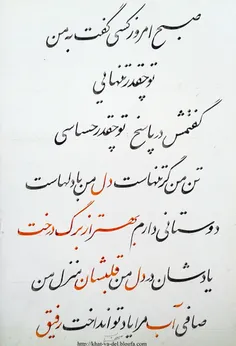 صبح امروز کسی گفت به من
تو چقدر تنهایی
گفتمش در پاسخ تو چقدر حساسی
تن من گر تنهاست دل من با دلهاست
دوستانی دارم بهتر از برگ درخت
یادشان در دل من قلبشان منزل من
صافی آب مرا یاد تو انداخت رفیق
http://khat-va-del.blogfa.com